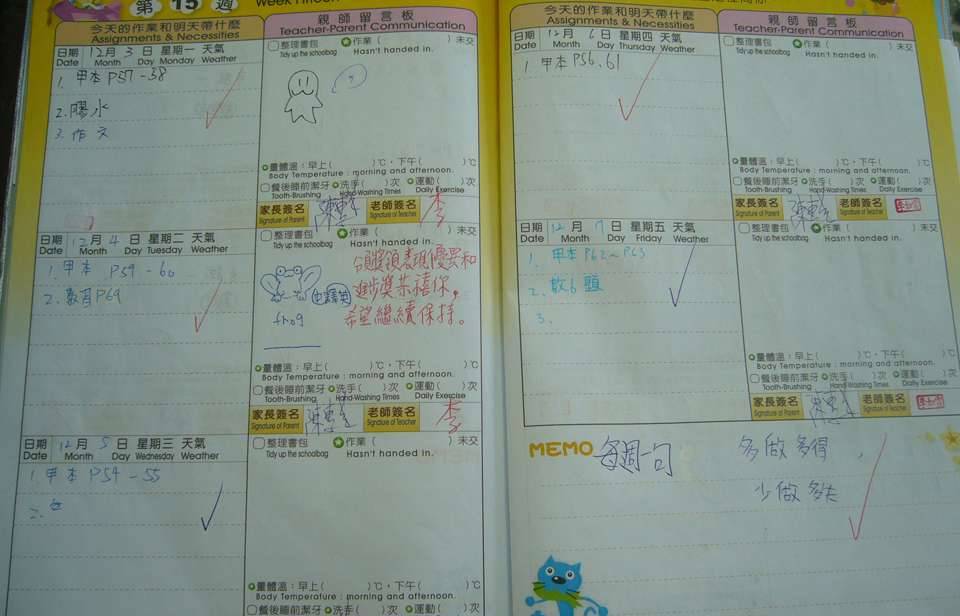 第 15 週
Week Fifteen
今天的作業和明天帶什麼
Assignments & Necessities
親師留言板
Teacher-Parent Communication
日期 12月 3日 星期一 天氣
Date Month Day Monday Weather
1. 甲本 P57-58
2. 膠水
3. 作文
整理書包 作業( )未交
Tidy up the schoolbag Hasn't handed in.
量體溫:早上( )℃,下午( )℃
Body Temperature : morning and afternoon.
餐後睡前潔牙 洗手( )次 運動( )次
Tooth-Brushing Hand-Washing Times Daily Exercise
家長簽名 老師簽名 李
Signature of Parent Signature of Teacher
日期 12月 4日 星期二 天氣
Date Month Day Tuesday Weather
1. 甲本 P59-60
2. 數習P69
整理書包 作業( )未交
Tidy up the schoolbag Hasn't handed in.
frog
領獎項表現優異和
進步獎恭禧你,
希望繼續保持。
量體溫:早上( )℃,下午( )℃
Body Temperature : morning and afternoon.
餐後睡前潔牙 洗手( )次 運動( )次
Tooth-Brushing Hand-Washing Times Daily Exercise
家長簽名 老師簽名 李
Signature of Parent Signature of Teacher
日期 12月 5日 星期三 天氣
Date Month Day Wednesday Weather
1. 甲本 P54-55
整理書包 作業( )未交
Tidy up the schoolbag Hasn't handed in.
量體溫:早上( )℃,下午( )℃
Body Temperature : morning and afternoon.
餐後睡前潔牙 洗手( )次 運動( )次
今天的作業和明天帶什麼
Assignments & Necessities
親師留言板
Teacher-Parent Communication
日期 12月 6日 星期四 天氣
Date Month Day Thursday Weather
1. 甲本 P56、61
整理書包 作業( )未交
Tidy up the schoolbag Hasn't handed in.
量體溫:早上( )℃,下午( )℃
Body Temperature : morning and afternoon.
餐後睡前潔牙 洗手( )次 運動( )次
Tooth-Brushing Hand-Washing Times Daily Exercise
家長簽名 老師簽名
Signature of Parent Signature of Teacher
日期 12月 7日 星期五 天氣
Date Month Day Friday Weather
1. 甲本 P62~P63
2. 數 6
3.
整理書包 作業( )未交
Tidy up the schoolbag Hasn't handed in.
量體溫:早上( )℃,下午( )℃
Body Temperature : morning and afternoon.
餐後睡前潔牙 洗手( )次 運動( )次
Tooth-Brushing Hand-Washing Times Daily Exercise
家長簽名 老師簽名
Signature of Parent Signature of Teacher
MEMO 每週一句 多做多得,
少做多失